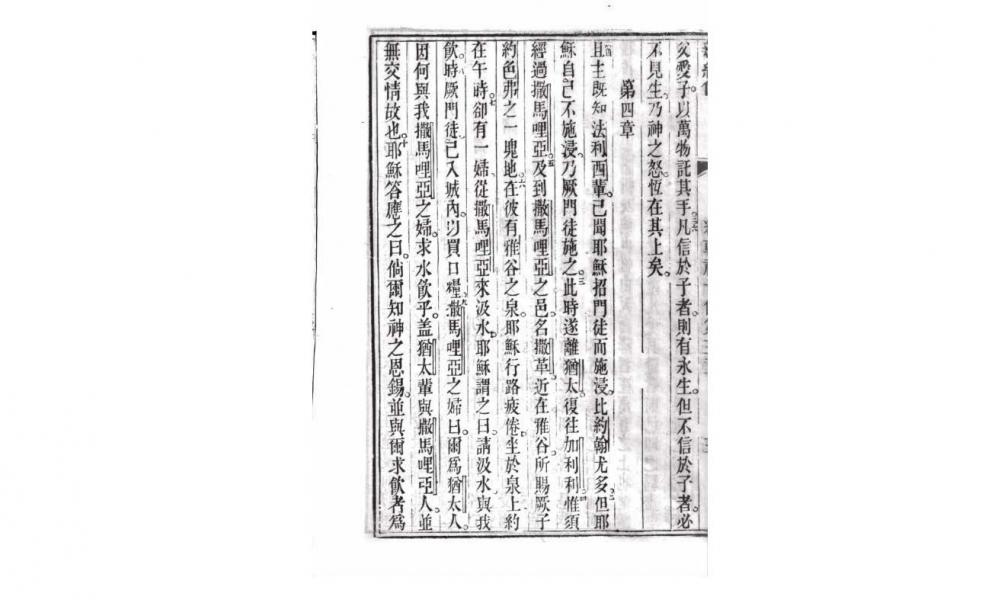 父愛子。以萬物託其手。凡信於子者。則有永生。但不信於子者。必
不見生。乃神之怒。恆在其上矣。
第四章
且主既知法利西輩。已聞耶穌招門徒而施浸。比約翰尤多。但耶
穌自己不施浸。乃厥門徒施之。三此時遂離猶太。復往加利利。惟須
經過撒馬哩亞。五及到撒馬哩亞之邑。名撒革。近在雅谷。所賜厥子
約色弗之一塊地。六在彼有雅谷之泉。耶穌行路疲倦。坐於泉上。約
在午時。七卻有一婦。從撒馬哩亞來汲水。耶穌謂之曰。請汲水與我
飲。時厥門徒。已入城內。以買口糧。撒馬哩亞之婦曰。爾為猶太人。
因何與我撒馬哩亞之婦。求水飲乎。盖猶太輩與撒馬哩亞人。並
無交情故也。十耶穌答應之曰。倘爾知神之恩錫。並與爾求飲者為